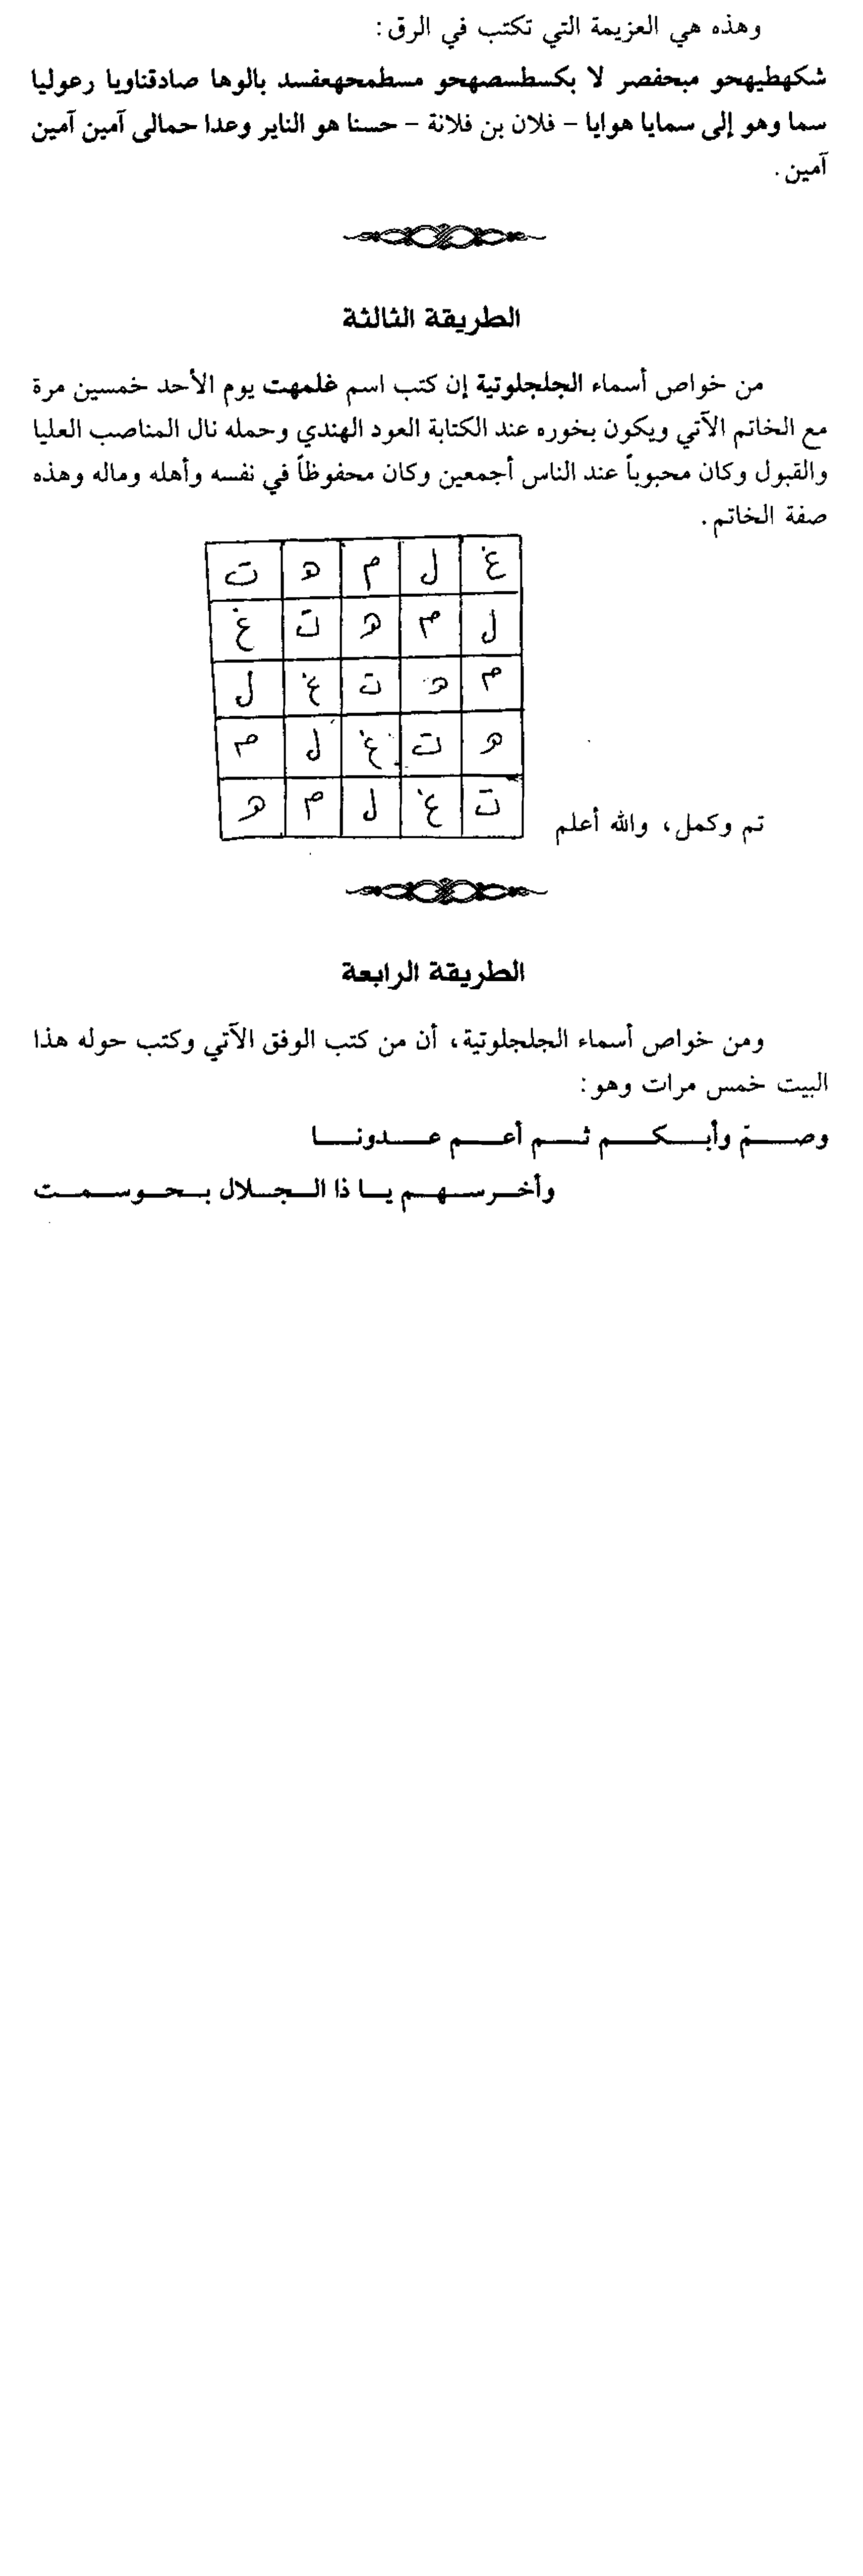 وهذه هي العزيمة التي تكتب في الرق:
شكهطيهحو مبحفصر لا بكسطسصهحو مسطمحهعفسد بالوها صادقناويا رعوليا
سما وهو إلى سمايا هوايا - فلان بن فلانة - حسنا هو الناير وعدا حمالى آمين آمين
آمين.
الطريقة الثالثة
من خواص أسماء الجلجلوتية إن كتب اسم غلمهت يوم الأحد خمسين مرة
مع الخاتم الآتي ويكون بخوره عند الكتابة العود الهندي وحمله نال المناصب العليا
والقبول وكان محبوباً عند الناس أجمعين وكان محفوظاً في نفسه وأهله وماله وهذه
صفة الخاتم.
غ ل م ه ت
ل م ه ت غ
م ه ت غ ل
ه ت غ ل م
ت غ ل م ه
تم وكمل، والله أعلم
الطريقة الرابعة
ومن خواص أسماء الجلجلوتية، أن من كتب الوفق الآتي وكتب حوله هذا
البيت خمس مرات وهو:
وصمّ وأبكم ثم أعم عدونا
وأخرسهم يا ذا الجلال بحوسمت